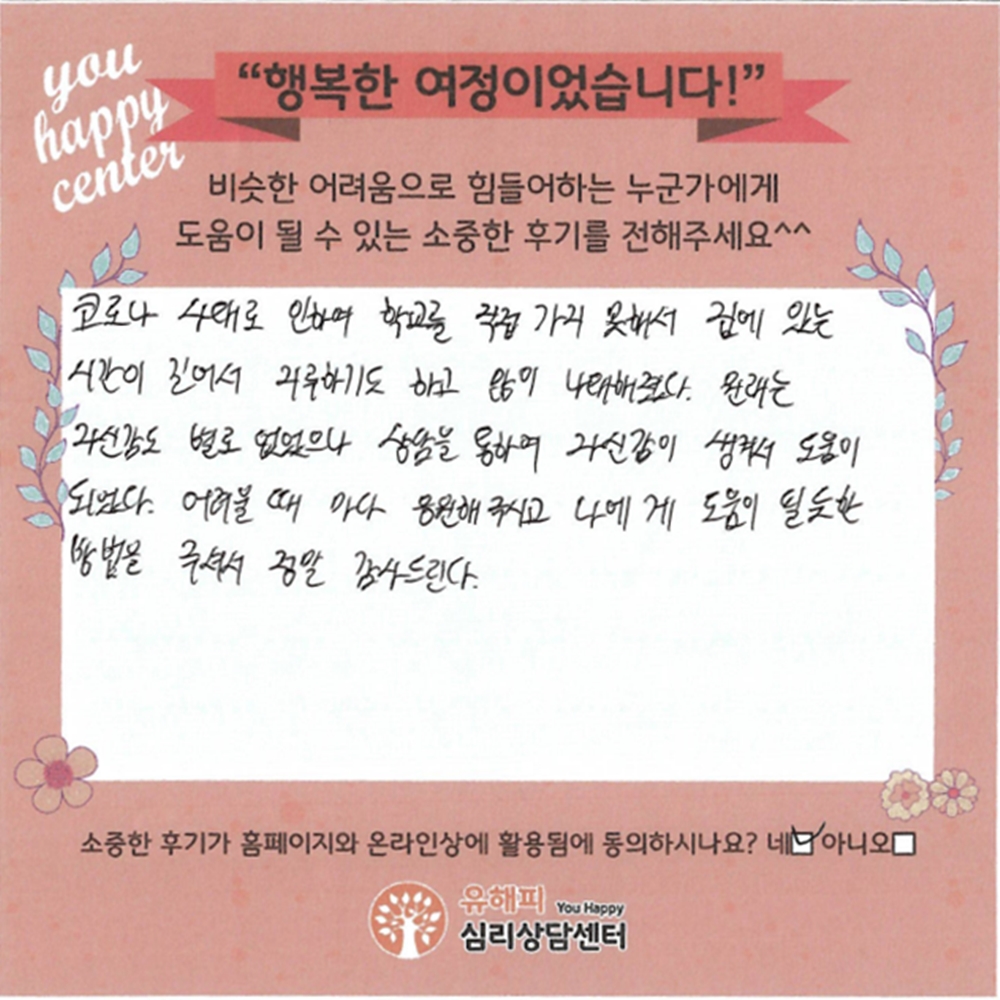 you
happy
center
“행복한 여정이었습니다!”
비슷한 어려움으로 힘들어하는 누군가에게
도움이 될 수 있는 소중한 후기를 전해주세요^^
코로나 사태로 인하여 학교를 직접 가지 못해서 집에 있는
시간이 길어서 지루하기도 하고 많이 나태해졌다. 원래는
자신감도 별로 없었으나 상담을 통하여 자신감이 생겨서 도움이
되었다. 어려울 때 마다 응원해주시고 나에게 도움이 될듯한
방법을 주셔서 정말 감사드린다.
소중한 후기가 홈페이지와 온라인상에 활용됨에 동의하시나요? 네 아니오
유해피 You Happy
심리상담센터